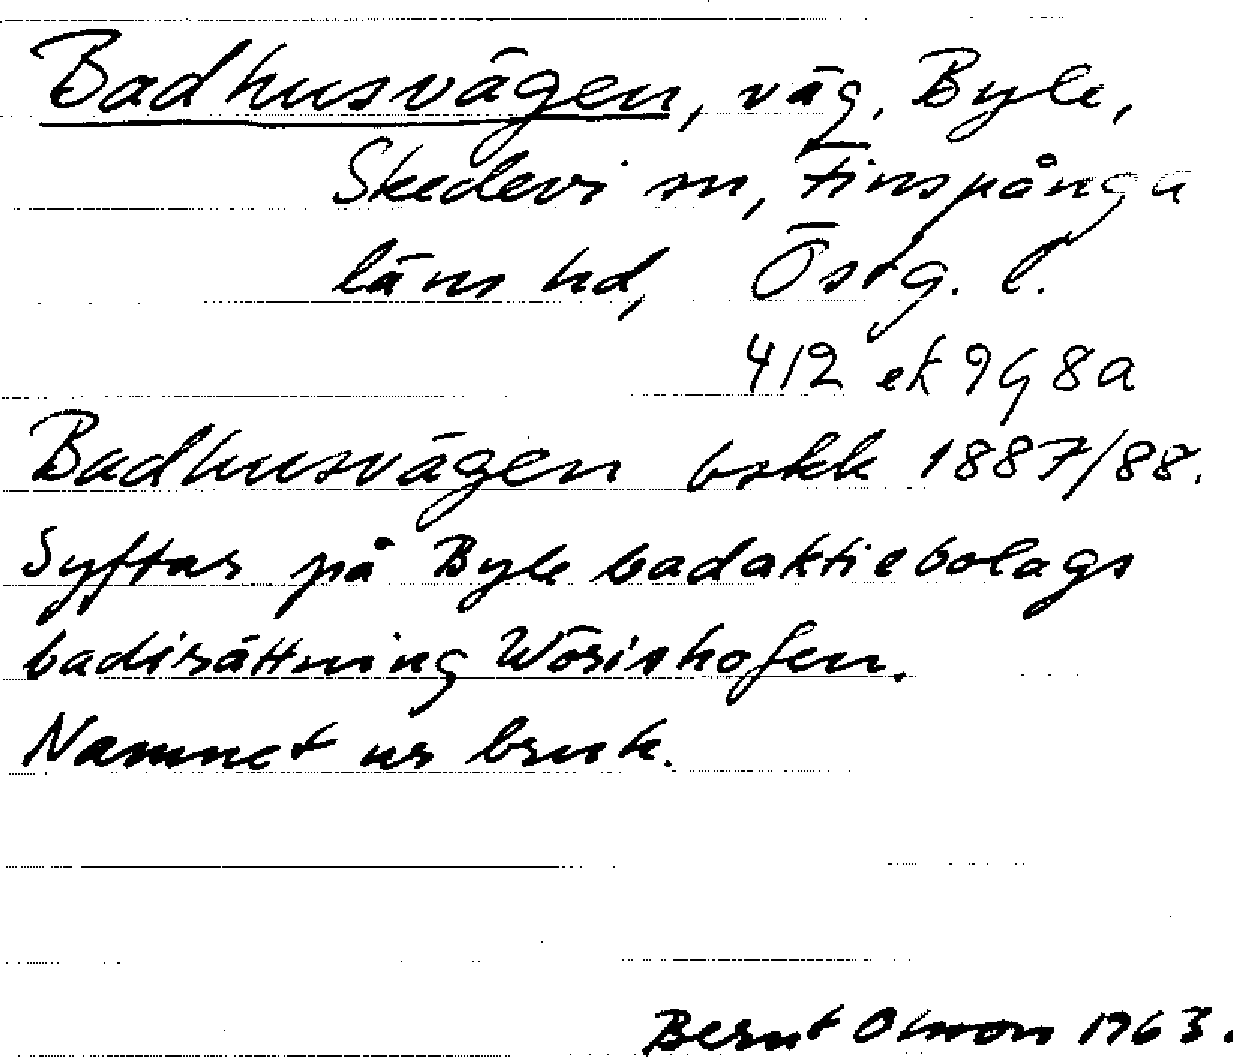 Badhusvägen, väg, Byle,
Skedevi sn, Finspånga
läns hd, Östg. l.
412 ek 9G 8a
Badhusvägen bskk 1887/88.
Syftar på Byle badaktiebolags
badirättning Wörishofen.
Namnet ur bruk.
Bernt Olsson 1963.